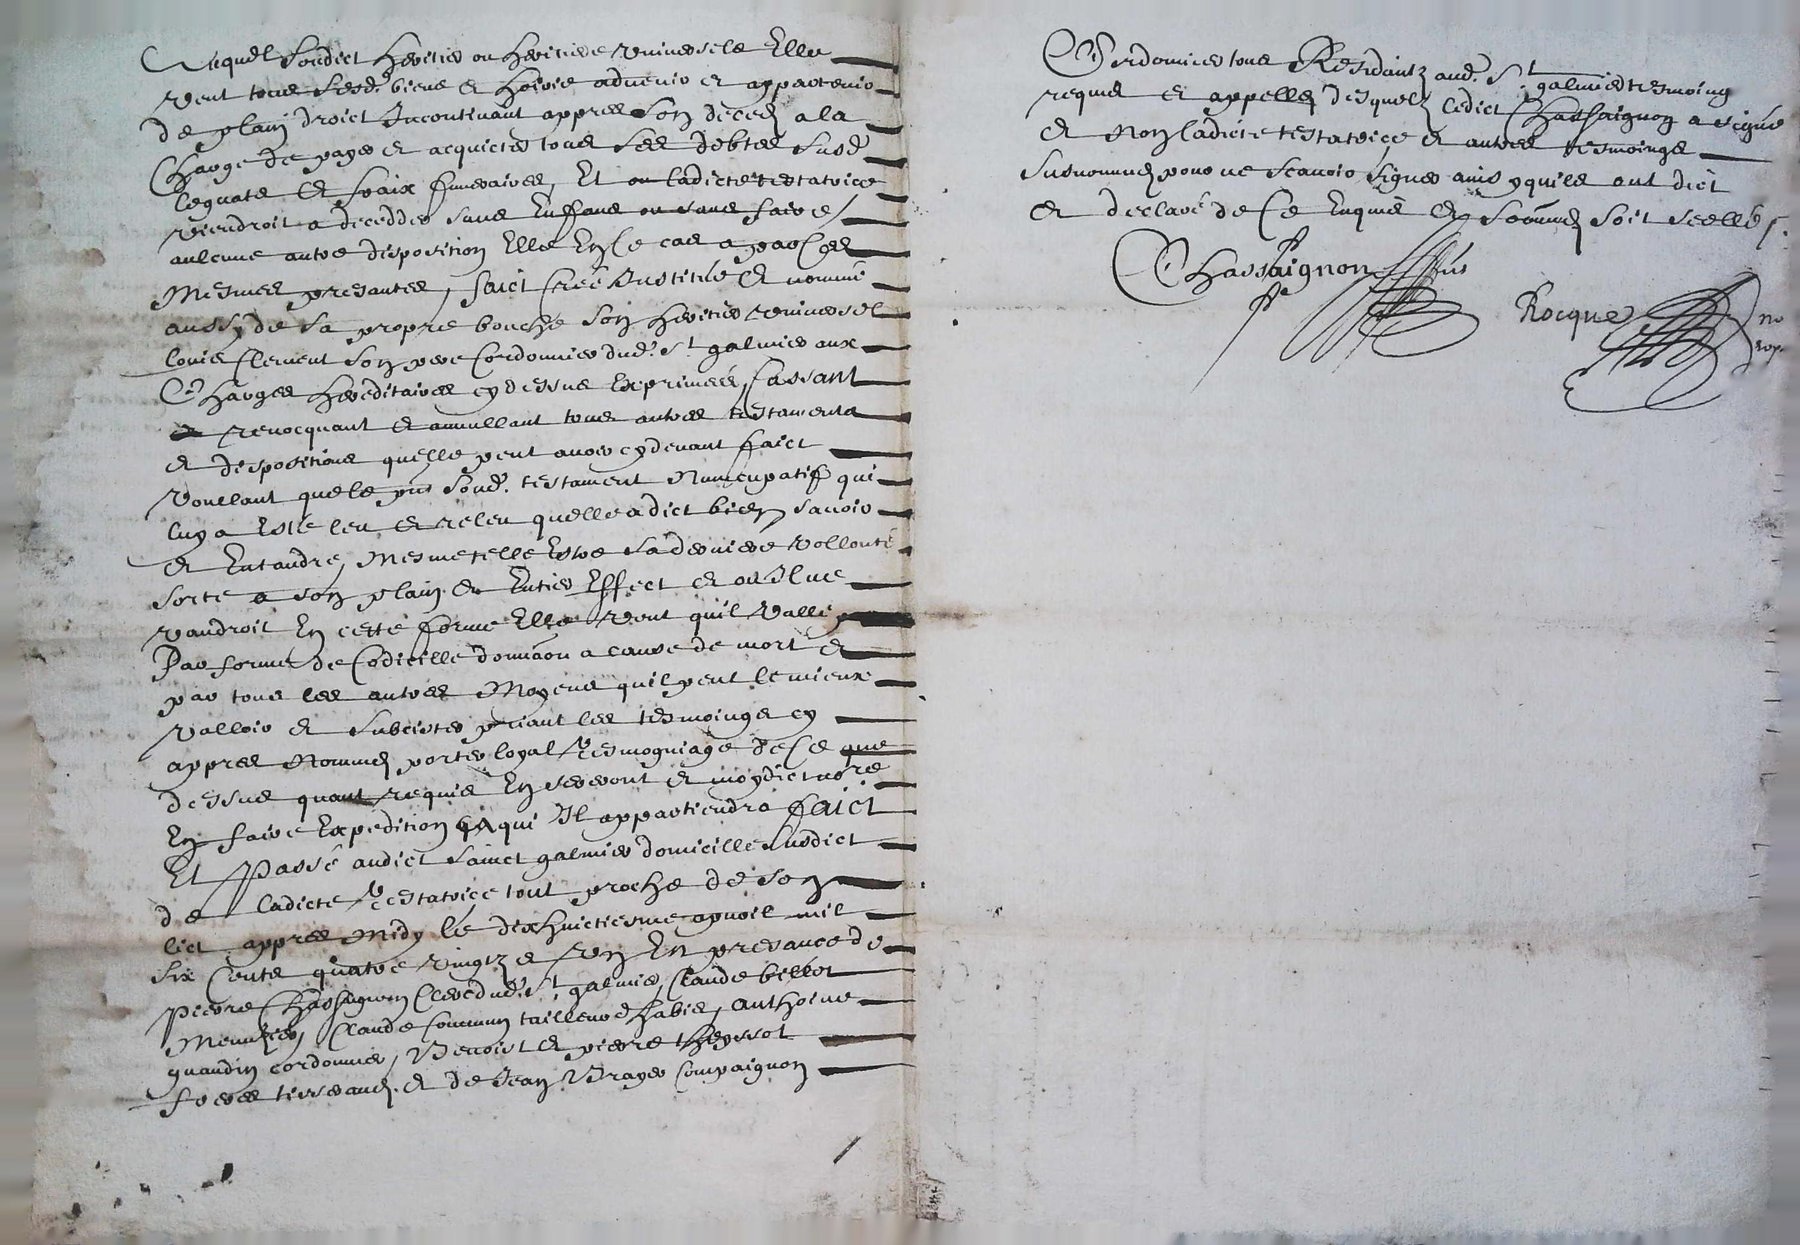 Auquel sondict heritier ou heritiere universele Elle
veut tous sesd. biens et hoirie advenir et appartenir
de plain droict Incontinant appres son deced a la
Charge de payer et acquicter tous ses debtes susd
legnats et fraix funeraires, Et ou ladicte testatrice
viendroit a decedder sans Enffans ou sans faire
aulcune autre disposition Elle En Ce cas a par Ces
Mesmes presantes, faict Creé Institué et nommé
aussy de sa propre bouche son heritier universel
louis Clement son pere Cordonnier dud. St galmier aux
Charges hereditaires cy dessus Exprimeés, Cassant
et revocquant et annullant tous autres testaments
et dispositions quelle peut avoir cy devant faict
Voullant que le pnt sond. testament Nuncupatif qui
luy a Esté leu et releu quelle a dict bien savoir
et Entandre, Mesme telle Estre sa derniere vollonté
sorte a son plain et Entier Effect et ou Il ne
vaudroit En cette forme Elle veut quil valle
Par forme de Codicille donnaon a cause de mort et
par tous les autres Moyens quil peut le mieux
valloir et subcister priant les tesmoings cy
appres Nommes porter loyal tesmogniage de Ce que
dessus quant requis En seront et moydict nore
En faire Expedition a qui Il appartiendra faict
Et Passé audict sainct galmier domicille susdict
de ladicte testatrice tout proche de son
lict appres Midy le dix huictiesme apvril mil
six Cents quatre vingtz et un En presance de
pierre Chassaignon Clerc dud. St galmier, Claude billot
Menuzier, Claude Commun tailleur dhabis, anthoine
guaudin cordonnier, Benoist et pierre theyssot
freres tisserands. et de Jean Brayer Compaignon
Cordonnier tous Residantz aud. St galmier tesmoing
requis et appelles desquelz ledict Chassaignon a signé
et Non ladicte testatrice et autres tesmoings
susnommes pour ne scavoir signer ains quils ont dict
et declaré de Ce Enquis et sommes soit scellé
Chassaignon
pnt
Rocque
no
roy.